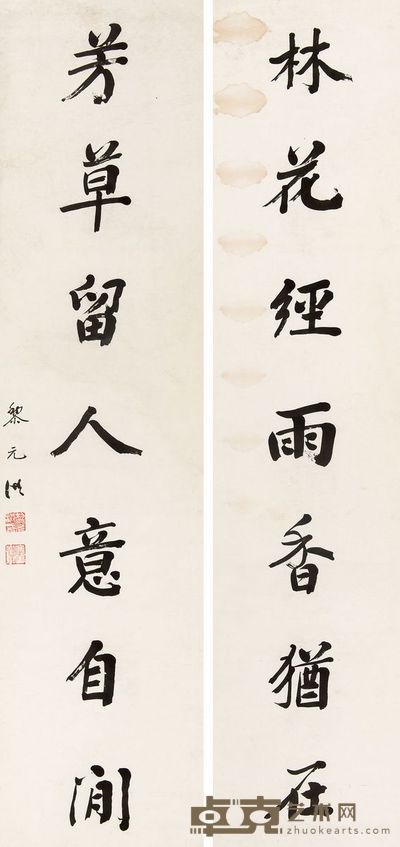 林花經雨香猶在
芳草留人意自閒
黎元洪
卓克艺术网
zhuokearts.com